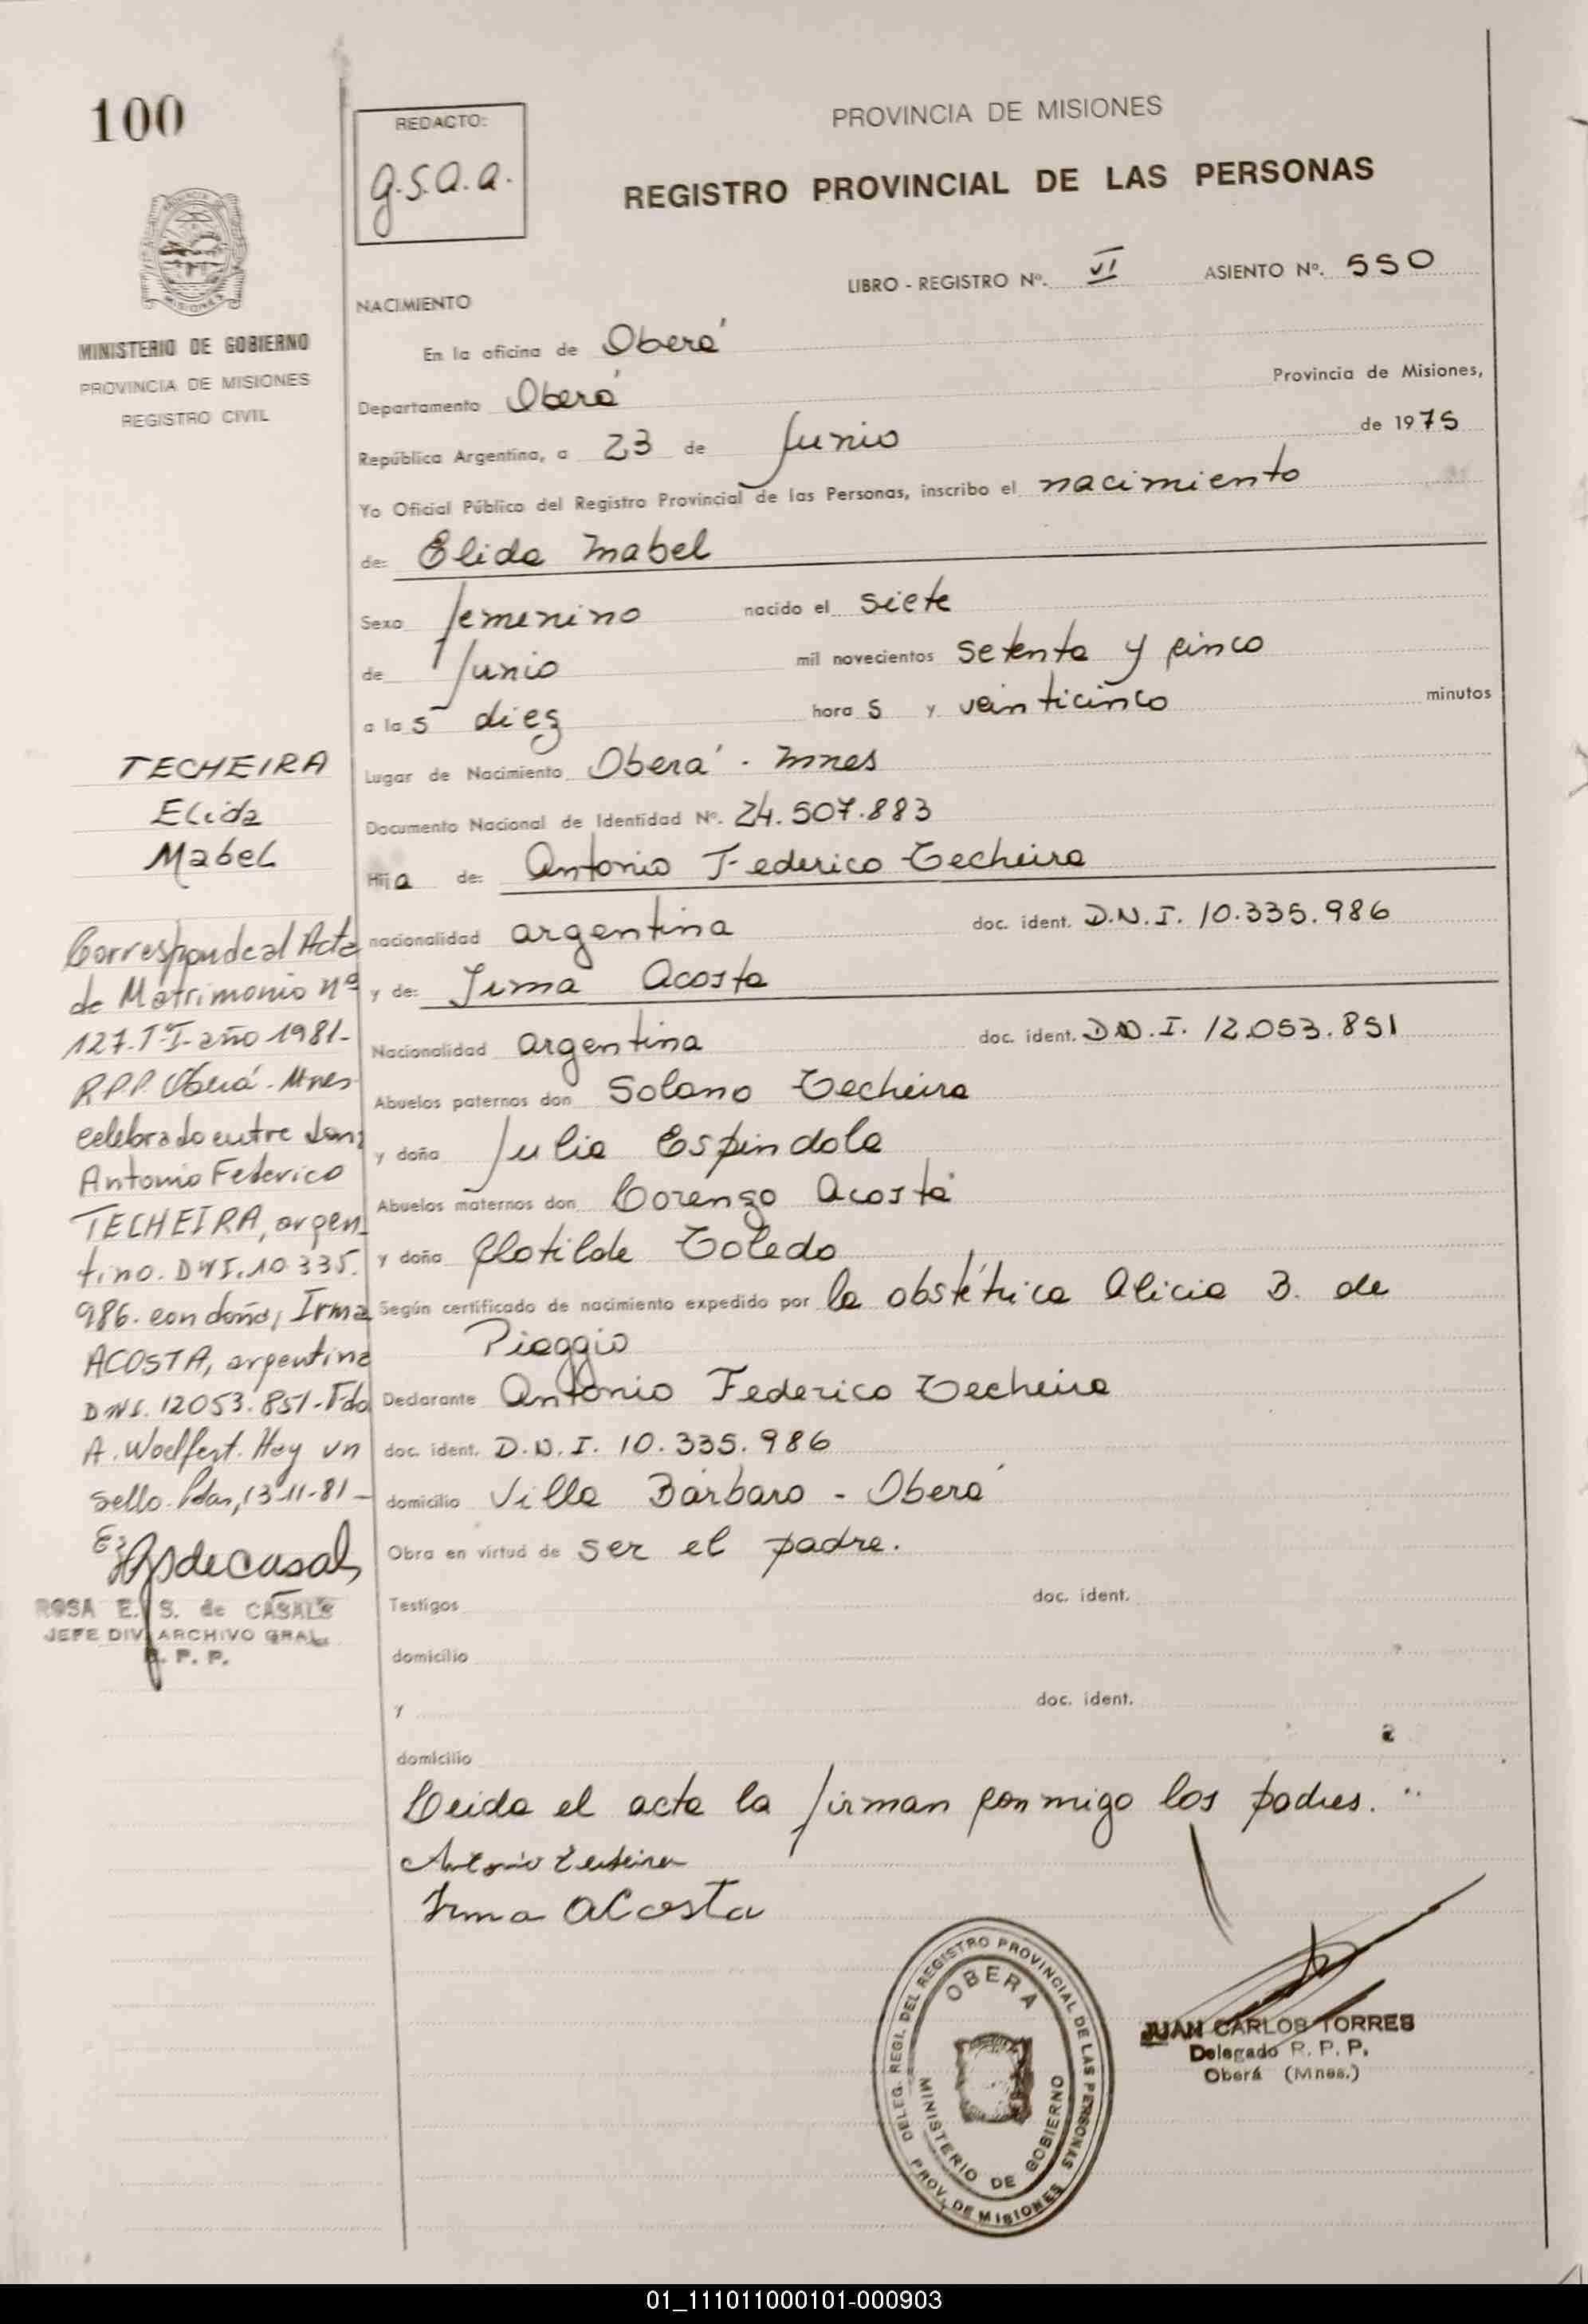 100
REDACTO:
g.s.a.a.
PROVINCIA DE MISIONES
REGISTRO PROVINCIAL DE LAS PERSONAS
LIBRO - REGISTRO Nº. VI ASIENTO Nº. 550
NACIMIENTO
MINISTERIO DE GOBIERNO
PROVINCIA DE MISIONES
REGISTRO CIVIL
En la oficina de Oberá
Departamento Oberá Provincia de Misiones,
República Argentina, a 23 de Junio de 1975
Yo Oficial Público del Registro Provincial de las Personas, inscribo el nacimiento
de: Elida Mabel
Sexo femenino nacido el siete
de Junio mil novecientos setenta y cinco
a las diez horas y veinticinco minutos
Lugar de Nacimiento Oberá - Mnes
Documento Nacional de Identidad Nº. 24.507.883
Hija de: Antonio Federico Techeira
nacionalidad argentina doc. ident. D.N.I. 10.335.986
y de: Irma Acosta
Nacionalidad argentina doc. ident. D.N.I. 12.053.851
Abuelos paternos don Solano Techeira
y doña Julia Espindola
Abuelos maternos don Lorenzo Acosta
y doña Clotilde Toledo
Según certificado de nacimiento expedido por la obstétrica Alicia B. de
Piaggio
Declarante Antonio Federico Techeira
doc. ident. D.N.I. 10.335.986
domicilio Villa Bárbaro - Oberá
Obra en virtud de ser el padre.
Testigos doc. ident.
domicilio
y doc. ident.
domicilio
Leida el acta la firman conmigo los padres.
Antonio Techeira
Irma Acosta
TECHEIRA
Elida
Mabel
Corresponde al Acta
de Matrimonio nº
127-Tº I-año 1981-
R.P.P. Oberá - Mnes
celebrado entre don;
Antonio Federico
TECHEIRA, argen-
tino. DNI. 10.335.
986. con doña; Irma
ACOSTA, argentina
DNI. 12053.851-Fdo
A. Woelfert. Hay un
sello. Pdas, 13-11-81-
ROSA E. S. de CASALS
JEFE DIV. ARCHIVO GRAL.
R. P. P.
DELEG. REGI. DEL REGISTRO PROVINCIAL DE LAS PERSONAS
OBERA
MINISTERIO DE GOBIERNO
PROV. DE MISIONES
JUAN CARLOS TORRES
Delegado R. P. P.
Oberá (Mnes.)
01_111011000101-000903